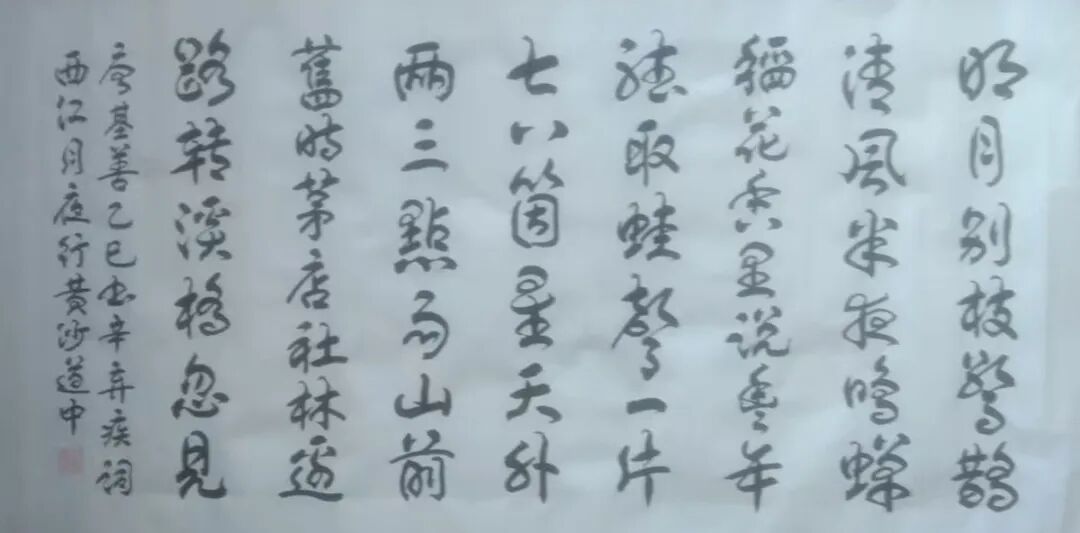 明月别枝惊鹊
清风半夜鸣蝉
稻花香里说豐年
聽取蛙聲一片
七八箇星天外
兩三點雨山前
舊時茅店社林邊
路转溪橋忽見
基善乙巳书辛弃疾词
西江月夜行黄沙道中